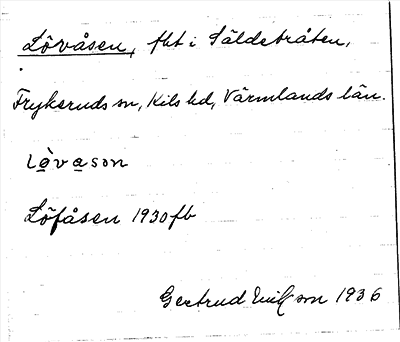 Lövåsen, fht i Säldebråten,
Frykeruds sn, Kils hd, Värmlands län.
Lövason
Löfåsen 1930 fb
Gertrud Erikson 1936